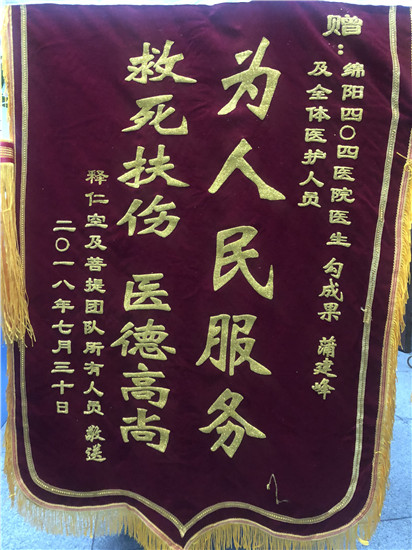 赠：绵阳四〇四医院医生 勾成果 蒲建峰
及全体医护人员
为人民服务
救死扶伤 医德高尚
释仁空及菩提团队所有人员 敬送
二〇一八年七月三十日